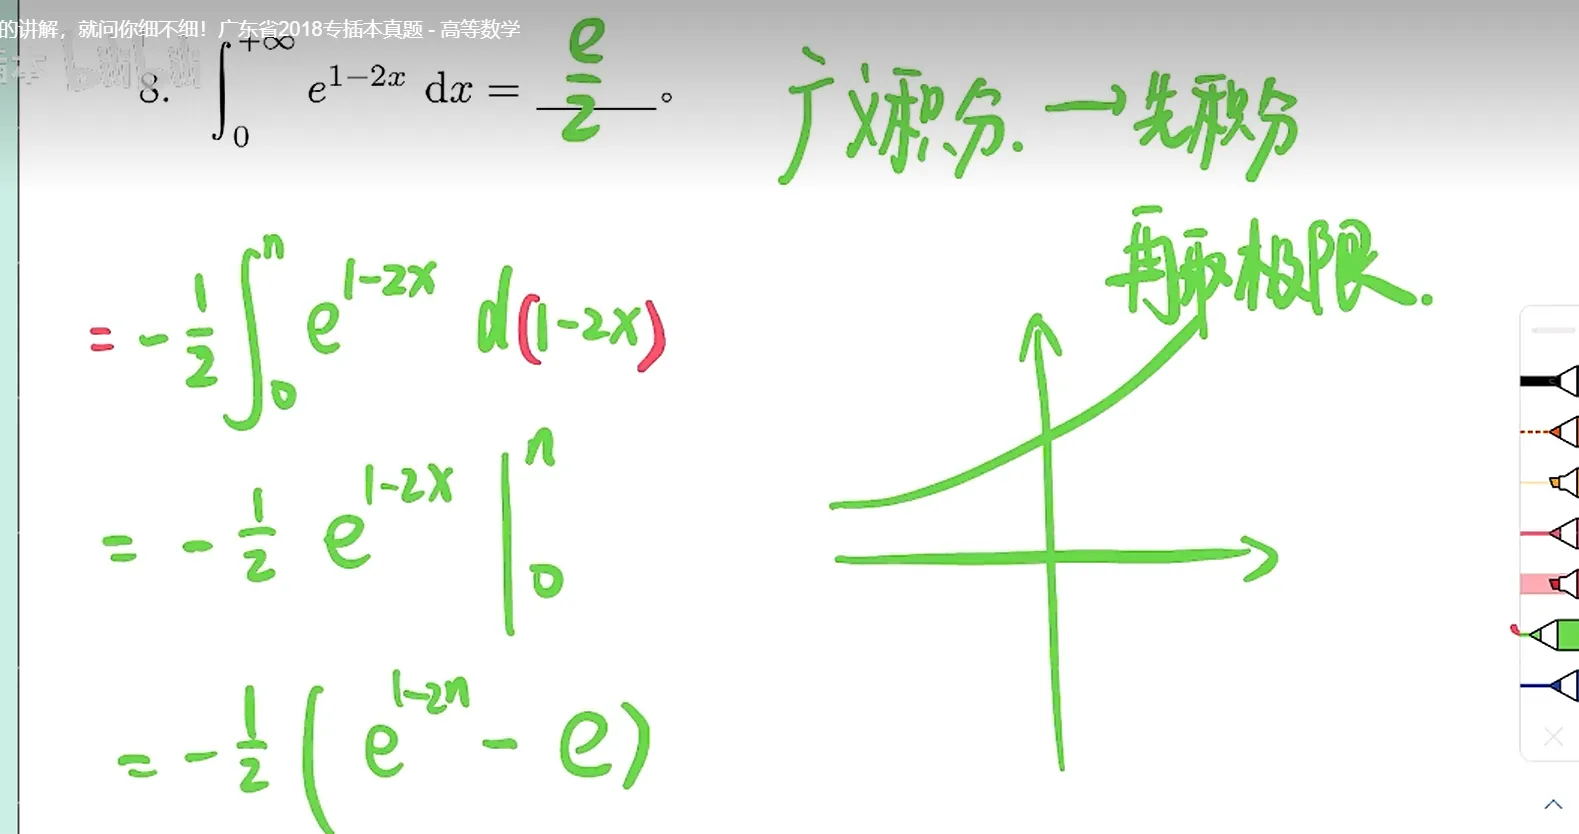 的讲解，就问你细不细！广东省2018专插本真题 - 高等数学
8. ∫_0^{+∞} e^{1-2x} dx = e/2 。
广义积分. → 先积分
再取极限.
= -1/2 ∫_0^n e^{1-2x} d(1-2x)
= -1/2 e^{1-2x} |_0^n
= -1/2 ( e^{1-2n} - e )